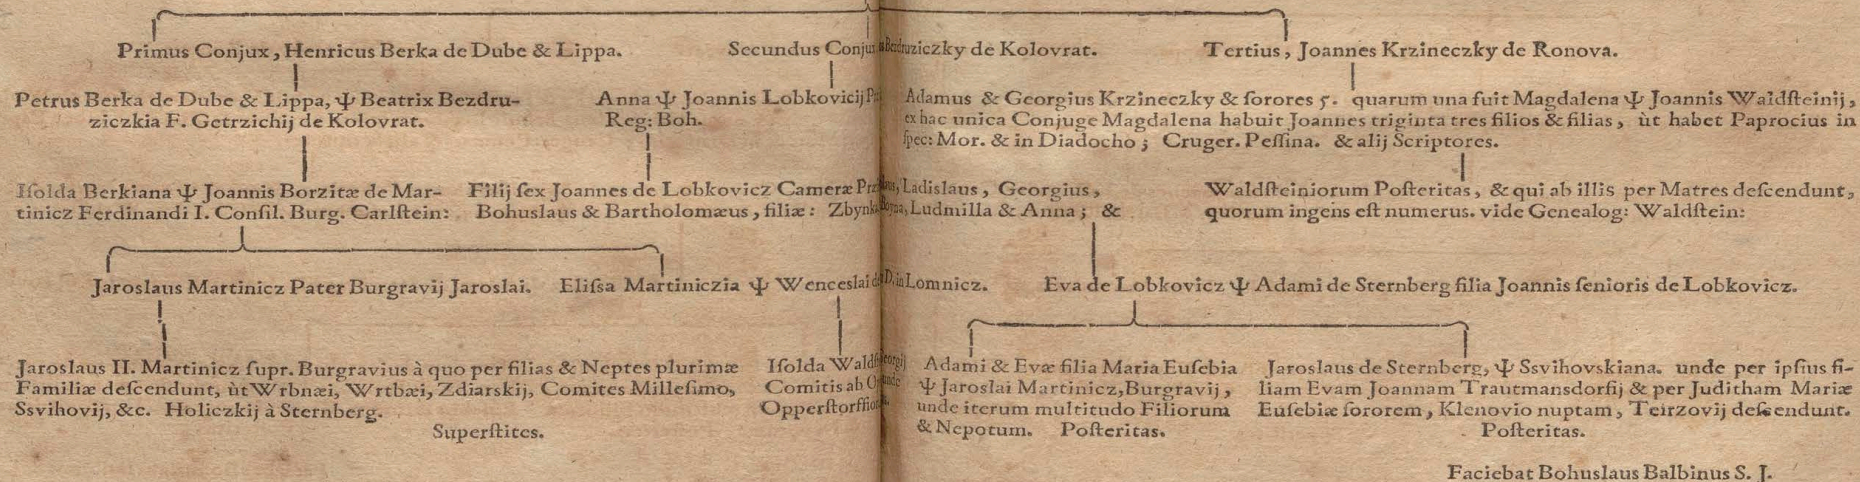 Primus Conjux, Henricus Berka de Dube & Lippa.
Secundus Conjux Bezdruziczky de Kolovrat.
Tertius, Joannes Krzineczky de Ronova.
Petrus Berka de Dube & Lippa, Ψ Beatrix Bezdru-
ziczkia F. Getrzichij de Kolovrat.
Anna Ψ Joannis Lobkovicij
Reg: Boh.
Adamus & Georgius Krzineczky & ſorores 5. quarum una fuit Magdalena Ψ Joannis Waldſteinij,
ex hac unica Conjuge Magdalena habuit Joannes triginta tres filios & filias, ùt habet Paprocius in
ſpec: Mor. & in Diadocho; Cruger. Peſſina. & alij Scriptores.
Iſolda Berkiana Ψ Joannis Borzitæ de Mar-
tinicz Ferdinandi I. Conſil. Burg. Carlſtein:
Filij ſex Joannes de Lobkovicz Cameræ Ladislaus, Georgius,
Bohuslaus & Bartholomæus, filiæ: Ludmilla & Anna; &
Waldſteiniorum Poſteritas, & qui ab illis per Matres deſcendunt,
quorum ingens eſt numerus. vide Genealog: Waldſtein:
Jaroslaus Martinicz Pater Burgravij Jaroslai.
Eliſsa Martiniczia Ψ Wenceslai D. in Lomnicz.
Eva de Lobkovicz Ψ Adami de Sternberg filia Joannis ſenioris de Lobkovicz.
Jaroslaus II. Martinicz ſupr. Burgravius à quo per filias & Neptes plurimæ
Familiæ deſcendunt, ùt Wrbnæi, Wrtbæi, Zdiarskij, Comites Milleſimo,
Ssvihovij, &c. Holiczkij à Sternberg.
Superſtites.
Iſolda
Comitis ab unde
Adami & Evæ filia Maria Euſebia
Ψ Jaroslai Martinicz, Burgravij,
unde iterum multitudo Filiorum
& Nepotum. Poſteritas.
Jaroslaus de Sternberg, Ψ Ssvihovskiana. unde per ipſius fi-
liam Evam Joannam Trautmansdorfij & per Juditham Mariæ
Euſebiæ ſororem, Klenovio nuptam, Teirzovij deſcendunt.
Poſteritas.
Faciebat Bohuslaus Balbinus S. J.